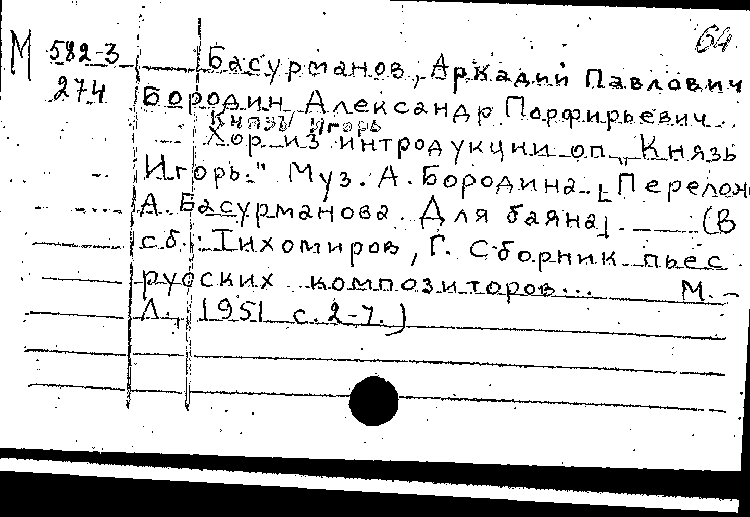 64
М 582-3
274
Басурманов, Аркадий Павлович
Бородин Александр Порфирьевич
Князь Игорь
Хор из интродукции оп. „Князь
Игорь." Муз. А. Бородина. [Перелож
А. Басурманова. Для баяна]. (В
сб.: Тихомиров, Г. Сборник пьес
русских композиторов... М.-
Л., 1951 с. 2-7.)